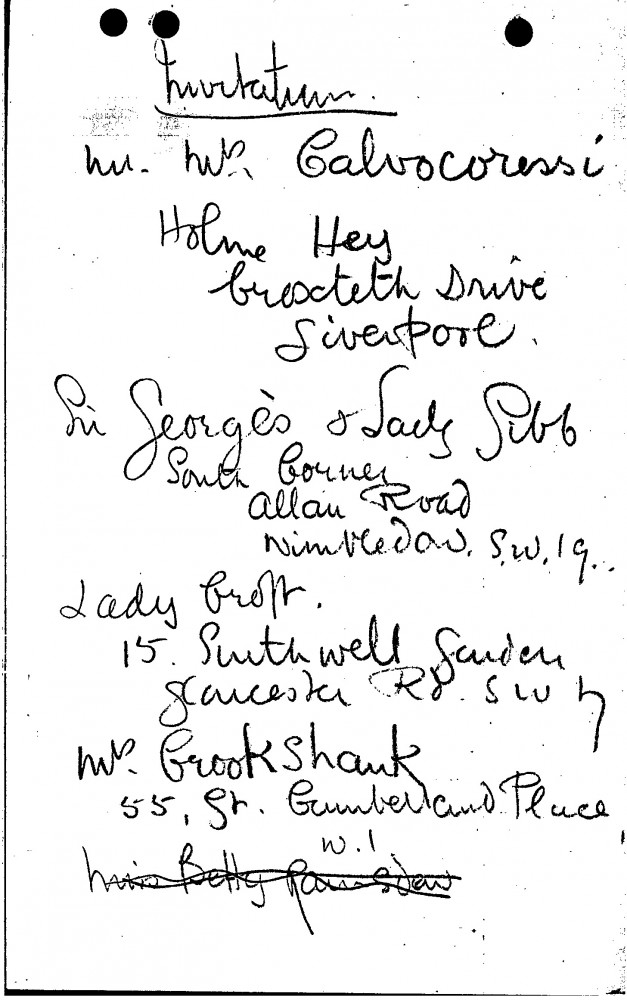 Invitation.
Mr. Mrs. Calvocoressi
Holme Hey
Croxteth Drive
Liverpool.
Sir Georgès & Lady Gibb
South Corner
Allan Road
Wimbledon. S.W. 19..
Lady Croft.
15. Southwell Garden
Gloucester Rd. S W 7
Mrs. Crookshank
55, Gt. Cumberland Place
W. 1
Miss Betty Ramsden